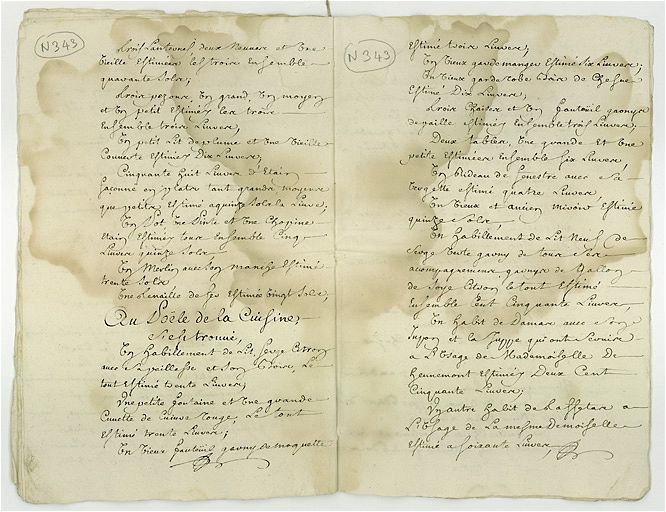 N 343
trois Lanternes deux neuves et Une
Vieille Estimées les trois Ensemble
quarante Sols;
trois pezons, Un grand, Un moyen
et Un petit Estimés les trois
Ensemble trois Livres;
Un petit Lit de plume et Une Vieille
Couverte Estimés Dix Livres,
Cinquante huit Livres d'Etain
façonné en platre tant grands moyens
que petits Estimé a quinze Sols la Livre;
Un Pot Une Pinte et Une Chopine
Etain Estimés tous Ensemble Cinq
Livres quinze Sols
Un Merlin avec Son manche Estimé
trente Sols
Une tenaille de fer Estimée Vingt Sols,
Au Poële de la Cuisine,
s'est trouvé,
Un habillement de Lit, Serge Citron
avec Sa paillasse et Son Le
tout Estimé trente Livres;
Une petite fontaine et Une grande
Cuvette de Cuivre rouge, Le tout
Estimé trente Livres;
Un Vieux fauteüil garny de moquette
N 343
Estimé trois Livres;
Un Vieux garde manger Estimé Six Livres;
Un Vieux garde robe de Chesne
Estimé Dix Livres,
trois Chaises et Un fauteüil garnys
de paille Estimés Ensemble trois Livres;
Deux tables, Une grande et Une
petite Estimées Ensemble Six Livres,
Un Rideau de fenestre avec Sa
Estimé quatre Livres
Un Vieux et ancien miroir Estimé
quinze Sols
Un habillement de Lit Neuf de
Serge Verte garny de tous Ses
accompagnemens garnys de
de Soye Citron le tout Estimé
Ensemble Cent Cinquante Livres,
Un habit de Damas avec Son
Jupon et la Juppe qui ont Servie
a L'Usage de Mademoiselle De
hennemont Estimés Deux Cent
Cinquante Livres;
Un autre habit de taffetas a
L'Usage de La mesme Demoiselle
Estimé a Soixante Livres,